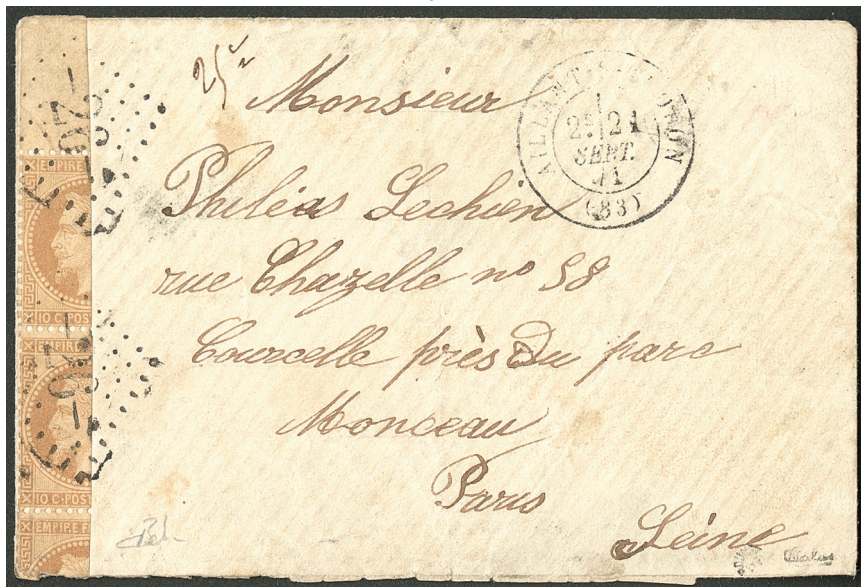 25c
Monsieur
Philéas Lechien
rue Chazelle nº 58
Courcelle près du parc
Monceau
Paris
Seine
AILLANT-S-THOLON
2E 21
SEPT.
71
(83)
EMPIRE F
10 C. POS
EMPIRE FR
10 C. POST
EMPIRE F
Calves